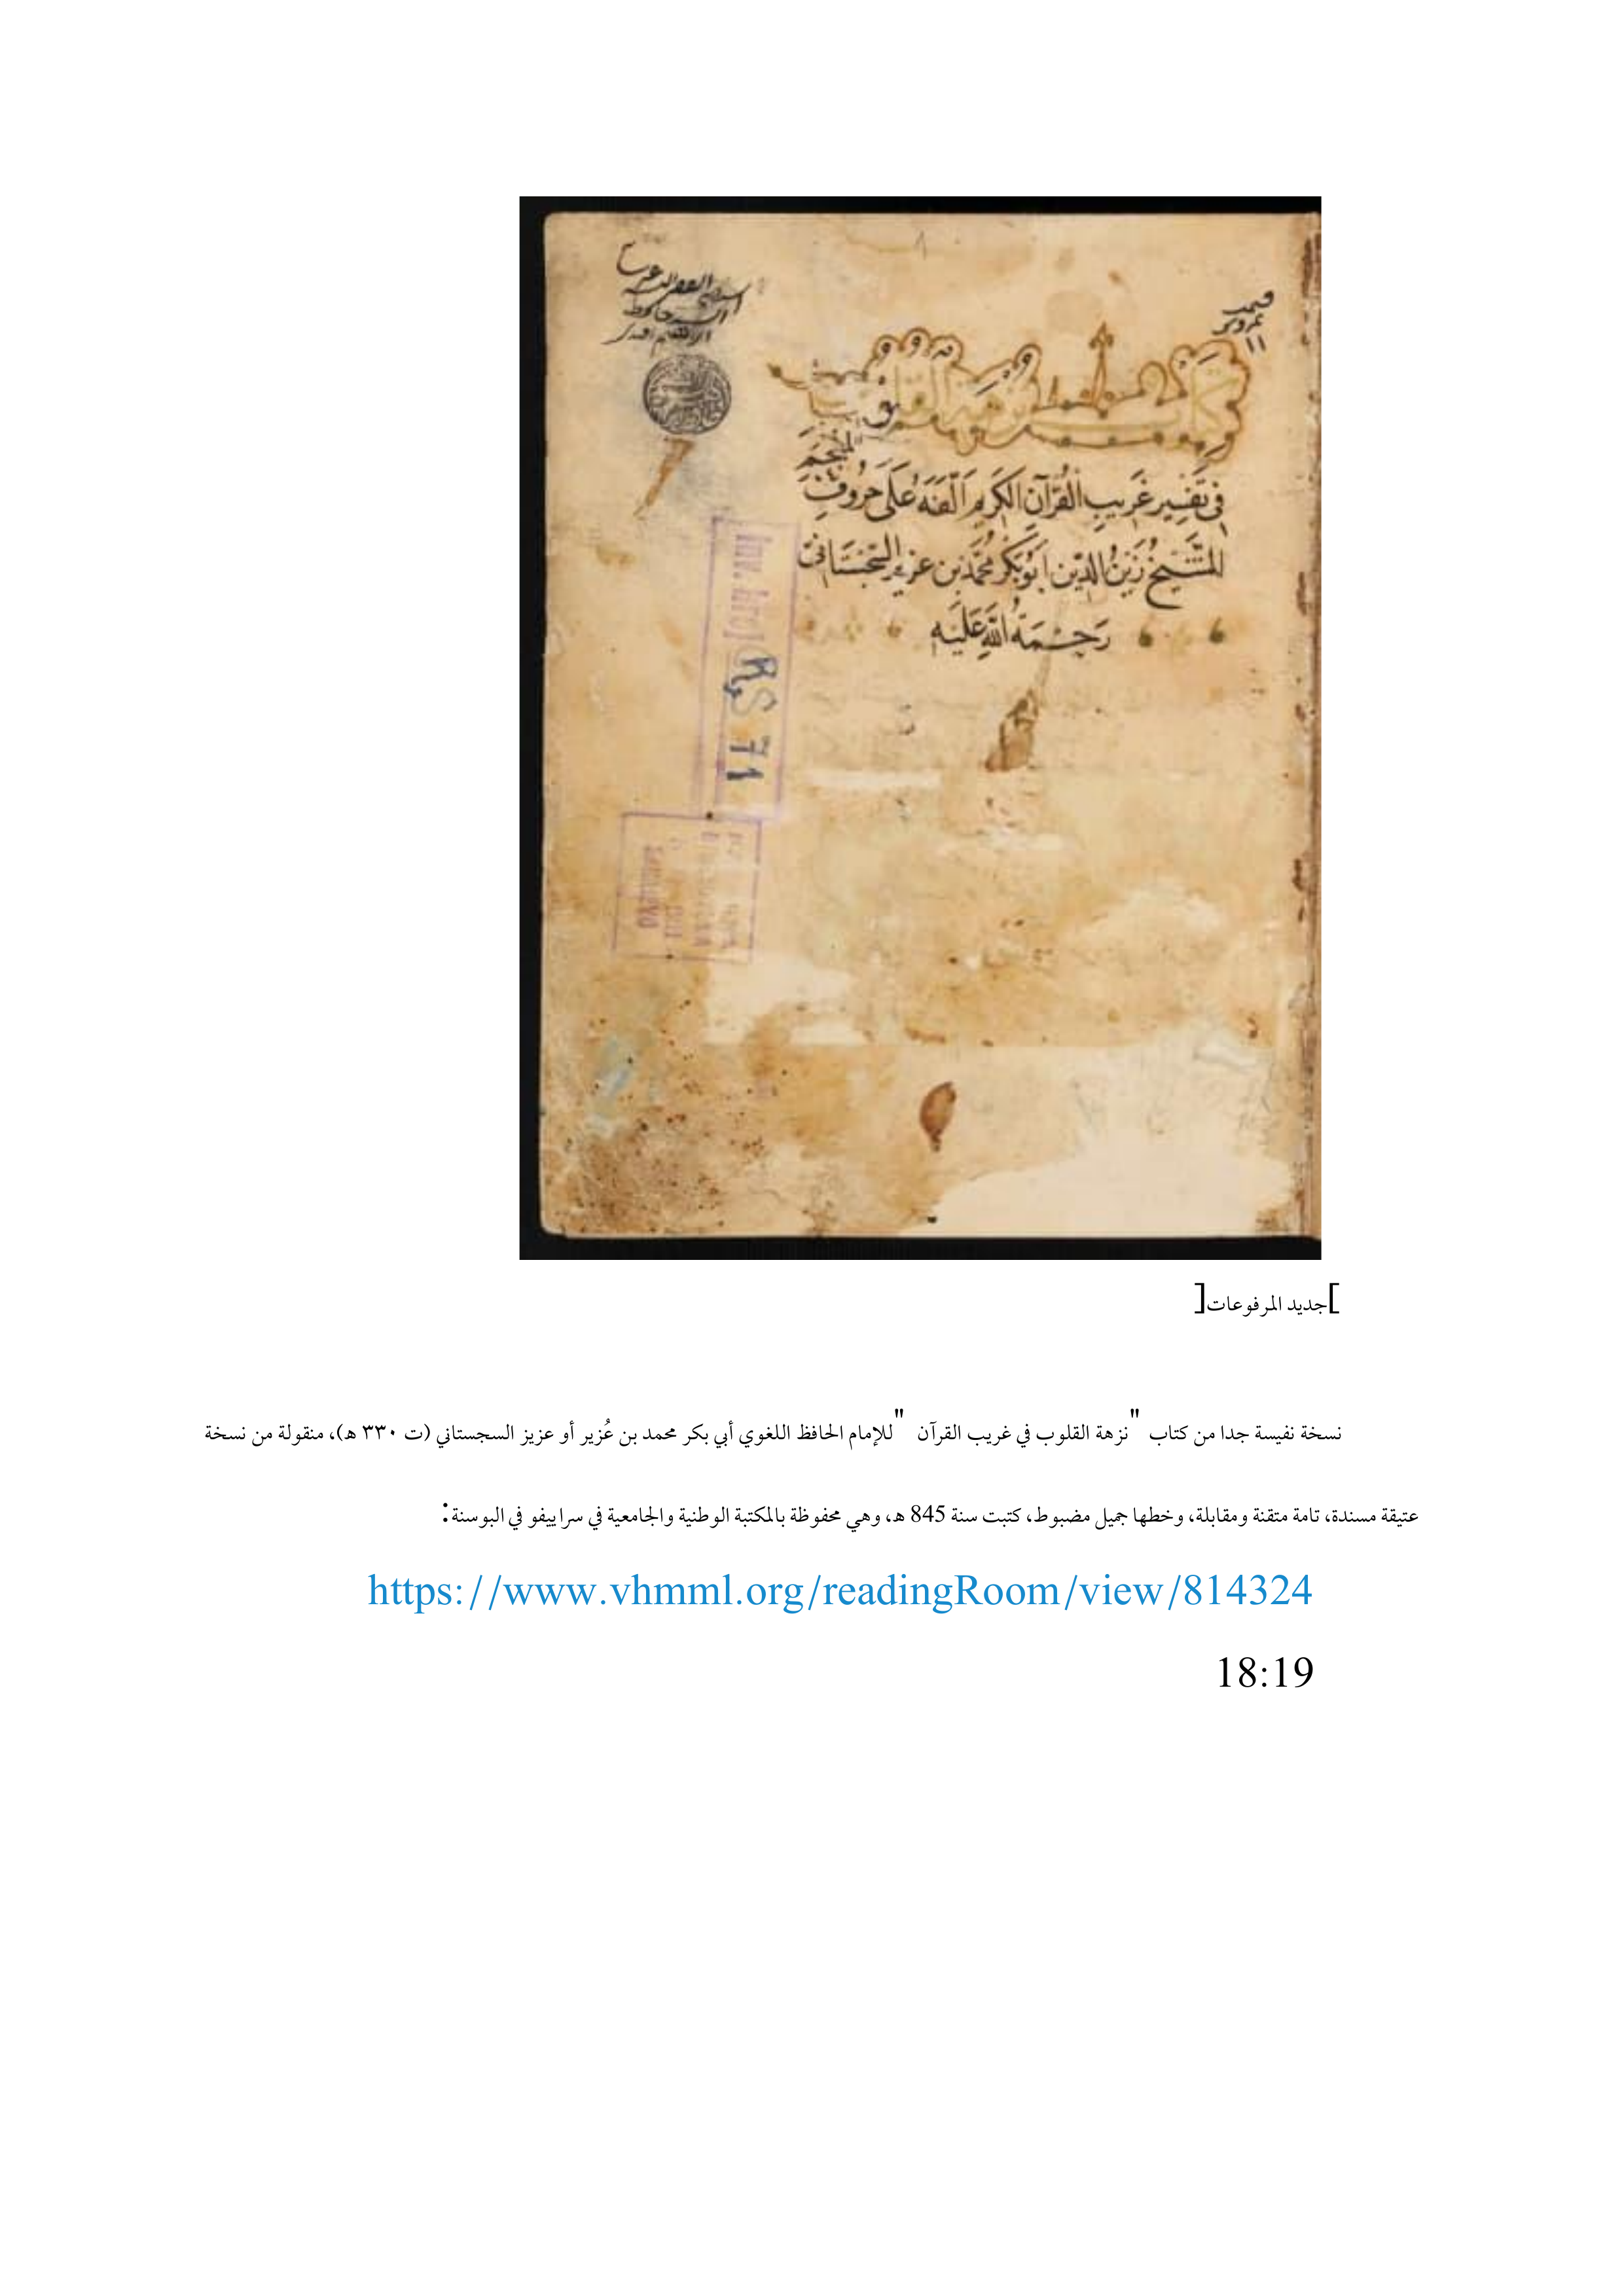 كتاب نزهة القلوب
في تفسير غريب القرآن الكريم ألفه على حروف المعجم
الشيخ زين الدين أبو بكر محمد بن عزير السجستاني
رحمة الله عليه
Inv. broj RS 71
]جديد المرفوعات[
نسخة نفيسة جدا من كتاب "نزهة القلوب في غريب القرآن" للإمام الحافظ اللغوي أبي بكر محمد بن عُزير أو عزيز السجستاني (ت ٣٣٠ هـ)، منقولة من نسخة
عتيقة مسندة، تامة متقنة ومقابلة، وخطها جميل مضبوط، كتبت سنة 845 هـ، وهي محفوظة بالمكتبة الوطنية والجامعية في سراييفو في البوسنة:
https://www.vhmml.org/readingRoom/view/814324
18:19